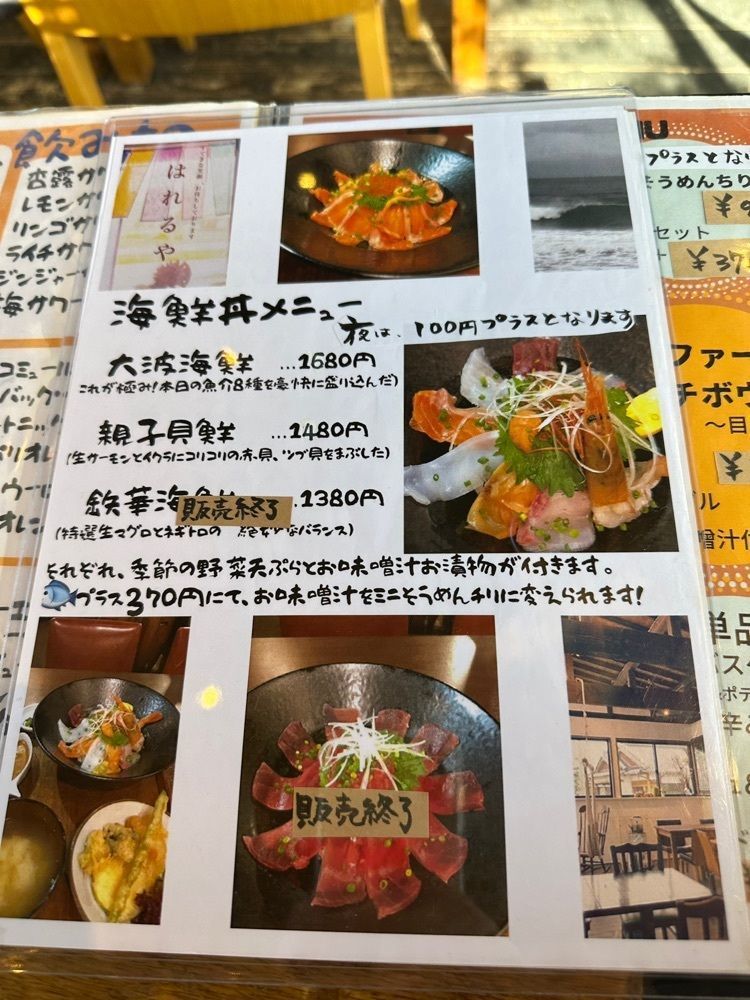 飲み
はれるや
海鮮丼メニュー
夜は、100円プラスとなります
大波海鮮 ...1680円
これが極み!本日の魚介8種を豪快に盛り込んだ)
親子貝鮮 ...1480円
(生サーモンとイクラにコリコリの赤貝、ツブ貝をまぶした)
鉄華海 ...1380円
販売終了
(特選生マグロとネギトロの なバランス)
それぞれ、季節の野菜天ぷらとお味噌汁お漬物が付きます。
プラス370円にて、お味噌汁をミニそうめんチリに変えられます!
販売終了
杏露
レモン
リンゴ
ライチ
ジンジャー
コミュール
バック
トニッ
プラスとなり
うめんちり
セット
¥37
ファー
チボウ
～目
ル
噌汁
単品